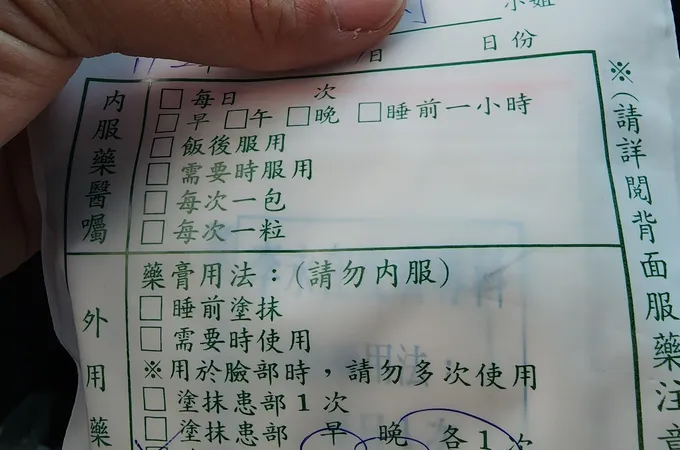 小姐
日 日份
內服藥醫囑
□ 每日 次
□ 早 □ 午 □ 晚 □ 睡前一小時
□ 飯後服用
□ 需要時服用
□ 每次一包
□ 每次一粒
外用藥
藥膏用法：(請勿內服)
□ 睡前塗抹
□ 需要時使用
※用於臉部時，請勿多次使用
□ 塗抹患部1次
□ 塗抹患部 早 晚 各1次
※(請詳閱背面服藥注意